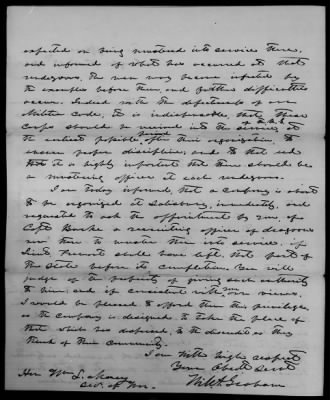 expected on being mustered into service there,
and informed of what has occurred at that
rendezvous, the men may become infected by
the examples before them, and further difficulties
occur. Indeed in the defectiveness of our
Militia Code, it is indispensable, that these
Corps should be received into the service of the U.S. at
the earliest possible period after their organization, to
ensure proper discipline, and to that end
it is highly important that there should be
a mustering officer at each rendezvous.
I am today informed, that a Company is about
to be organized at Salisbury, immediately, and
requested to ask the appointment by you of
Capt Bourke a recruiting officer of dragoons
now there to muster them into service, if
Lieut. shall have left that part of
the State before its completion, You will
judge of the propriety of giving such authority
to him: and if consistent with your own views,
I would be pleased to afford them this privilege,
as the Company is designed to take the place of
that which has disposed, to the discredit as they
think of their community.
I am with high respect
Your Obedt Servt
Will. A. Graham
Hon Wm L. Marcy
Sec. of War.